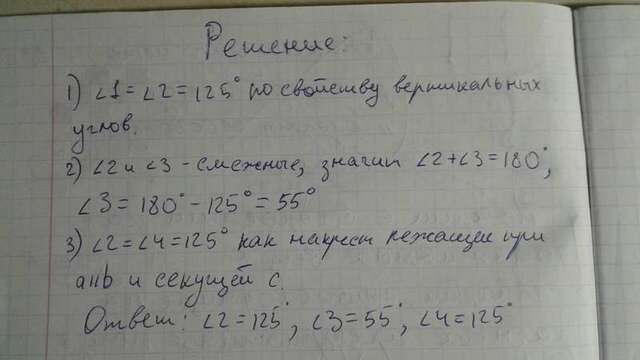 Решение:
1) ∠1 = ∠2 = 125° по свойству вертикальных
углов.
2) ∠2 и ∠3 - смежные, значит ∠2+∠3=180°,
∠3 = 180° - 125° = 55°
3) ∠2=∠4=125° как накрест лежащие при
a||b и секущей c.
Ответ: ∠2=125°, ∠3=55°, ∠4=125°